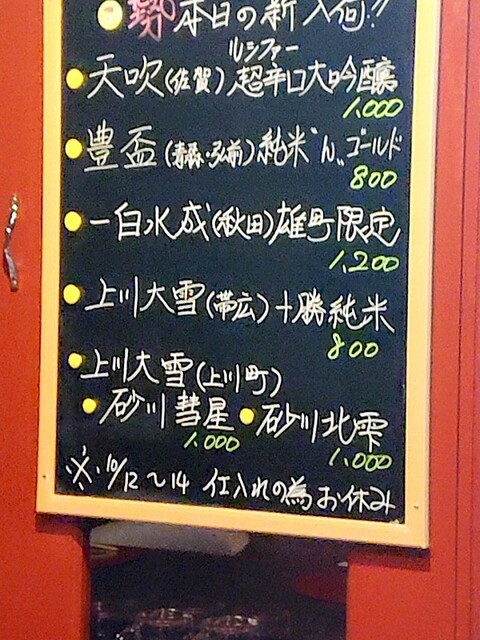 勢 本日の新入荷!!
ルシファー
天吹(佐賀)超辛口大吟醸
1,000
豊盃(青森・弘前)純米"ん"ゴールド
800
一白水成(秋田)雄町限定
1,200
上川大雪(帯広)十勝純米
800
上川大雪(上川町)
砂川彗星 砂川北雫
1,000 1,000
※.10/12〜14 仕入れの為お休み